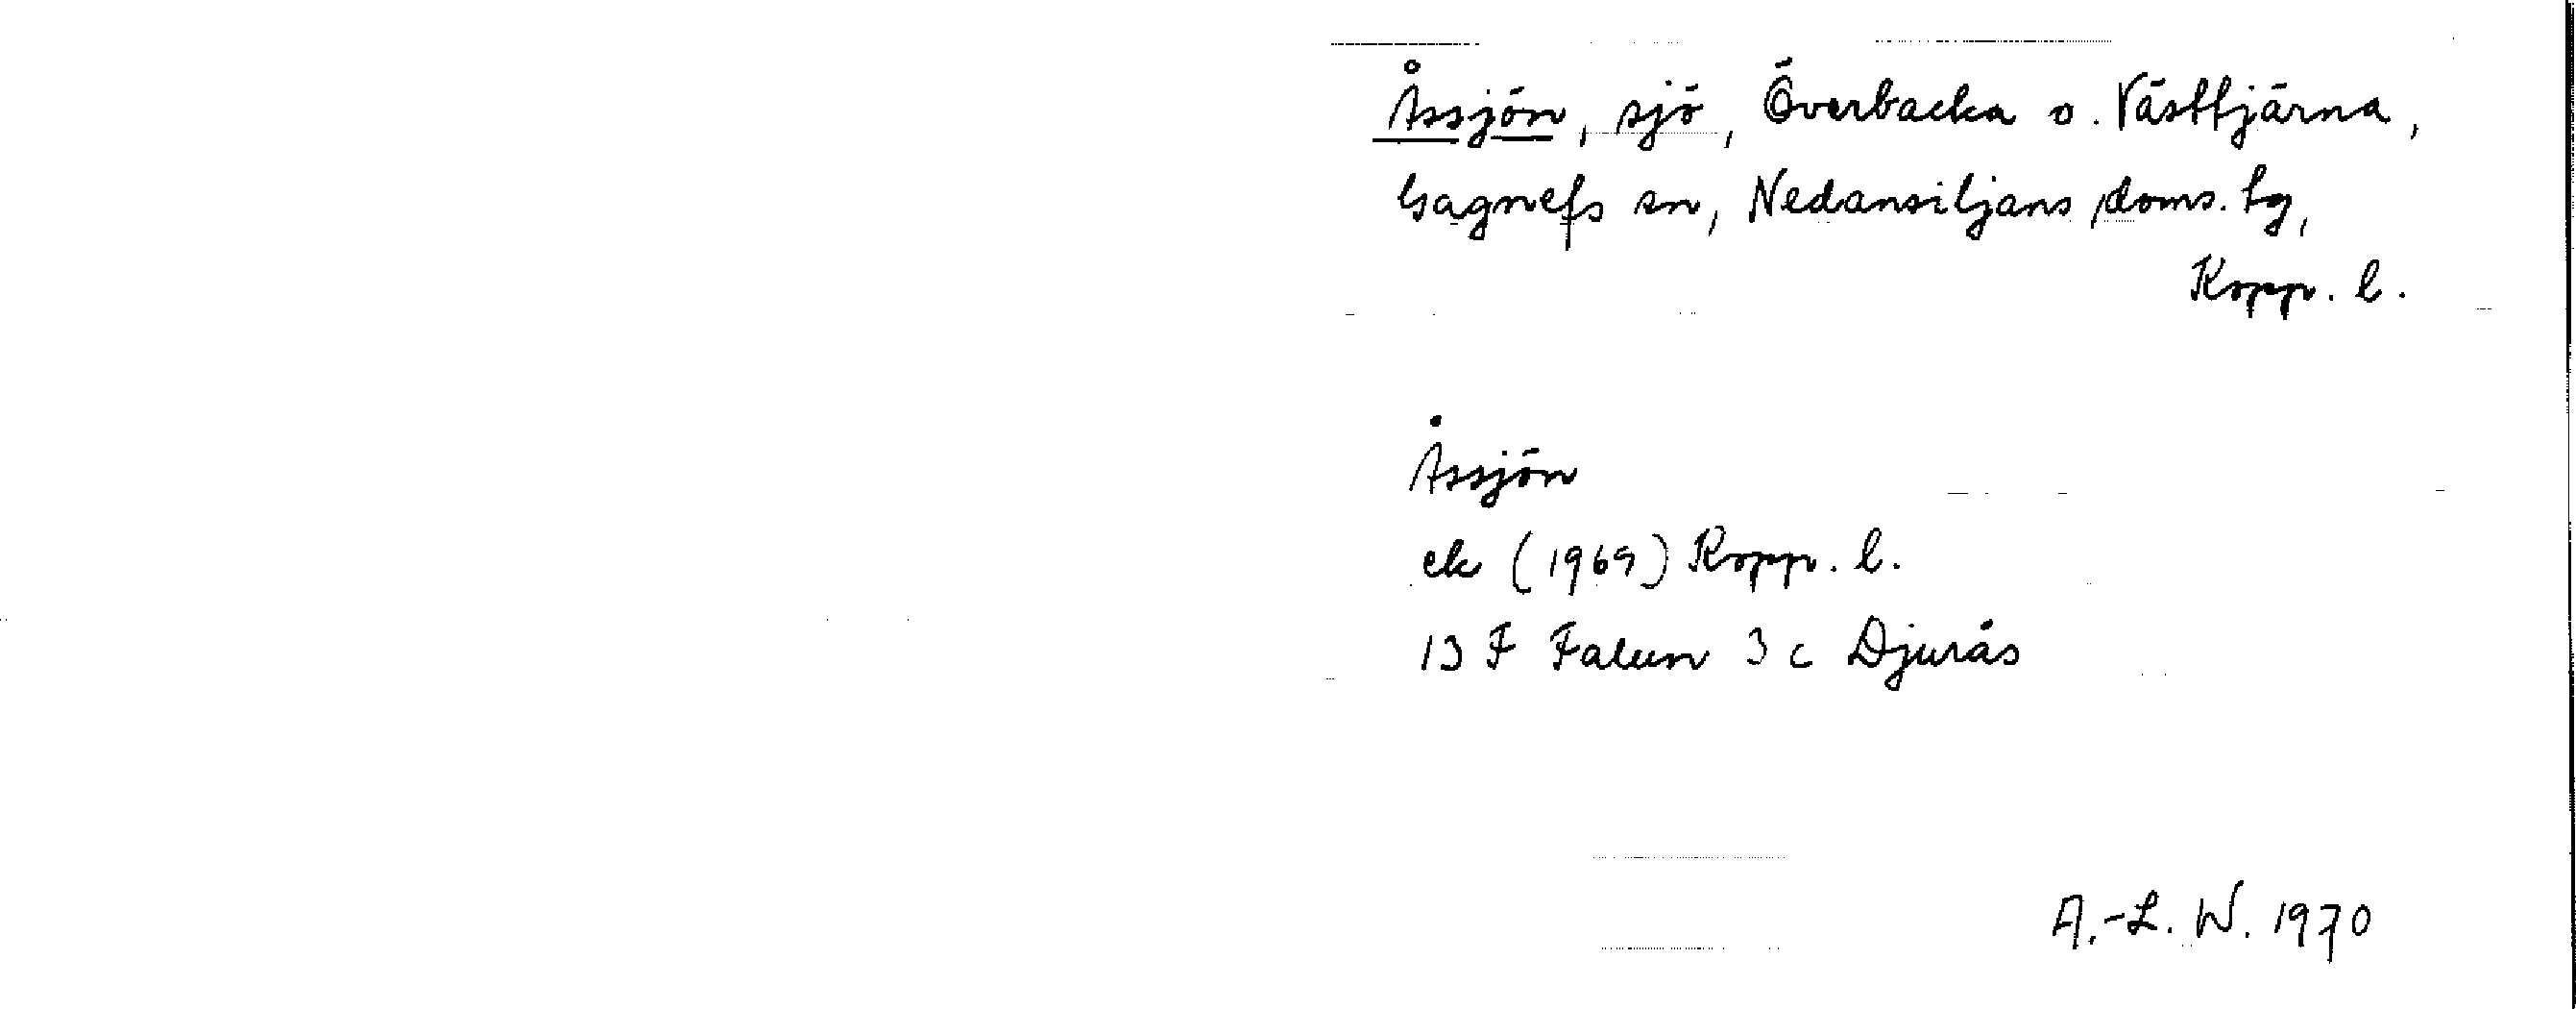 Åssjön, sjö, Överbacka o. Västtjärna,
Gagnefs sn, Nedansiljans doms. tg,
Kopp. l.
Åssjön
ek (1969) Kopp. l.
13 F Falun 3 c Djurås
A.-L. W. 1970